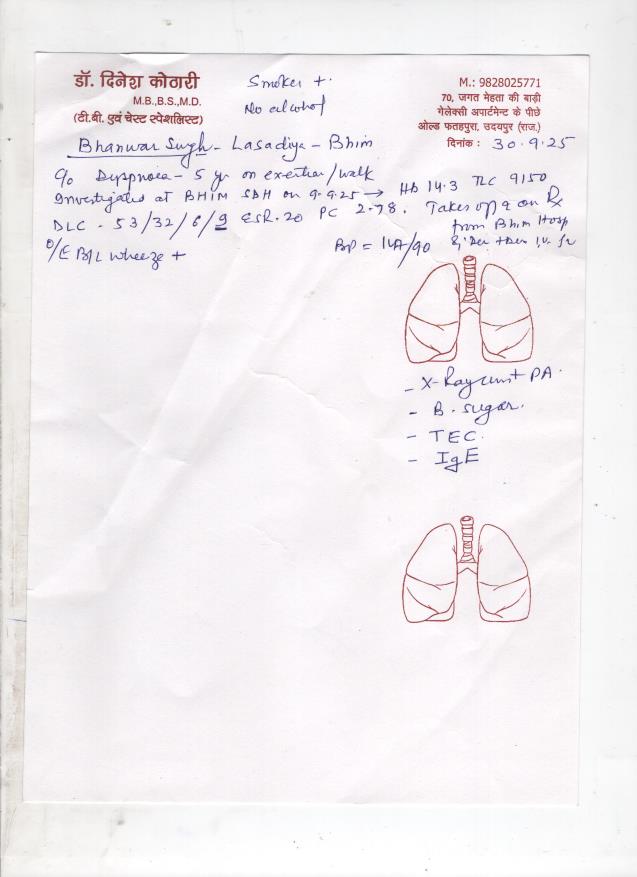 डॉ. दिनेश कोठारी
M.B.,B.S.,M.D.
(टी.बी. एवं चेस्ट स्पेशलिस्ट)
Smoker +.
No alcohol
M.: 9828025771
70, जगत मेहता की बाड़ी
गेलेक्सी अपार्टमेन्ट के पीछे
ओल्ड फतहपुरा, उदयपुर (राज.)
दिनांक : 30.9.25
Bhanwar Singh - Lasadiya - Bhim
c/o Dyspnoea - 5 yr on exertion/walk
Investigated at BHIM SDH on 9.9.25 → Hb 14.3 TLC 9150
DLC - 53/32/6/9 ESR.20 PC 2.78. Takes on Rx
from Bhim Hosp
O/E B/L wheeze +
BP = /90
- X-Ray PA.
- B. sugar.
- TEC.
- IgE